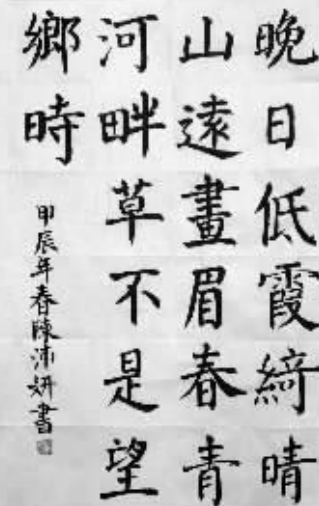 晚日低霞綺晴
山遠畫眉春青
河畔草不是望
鄉時
甲辰年春陳沛妍書